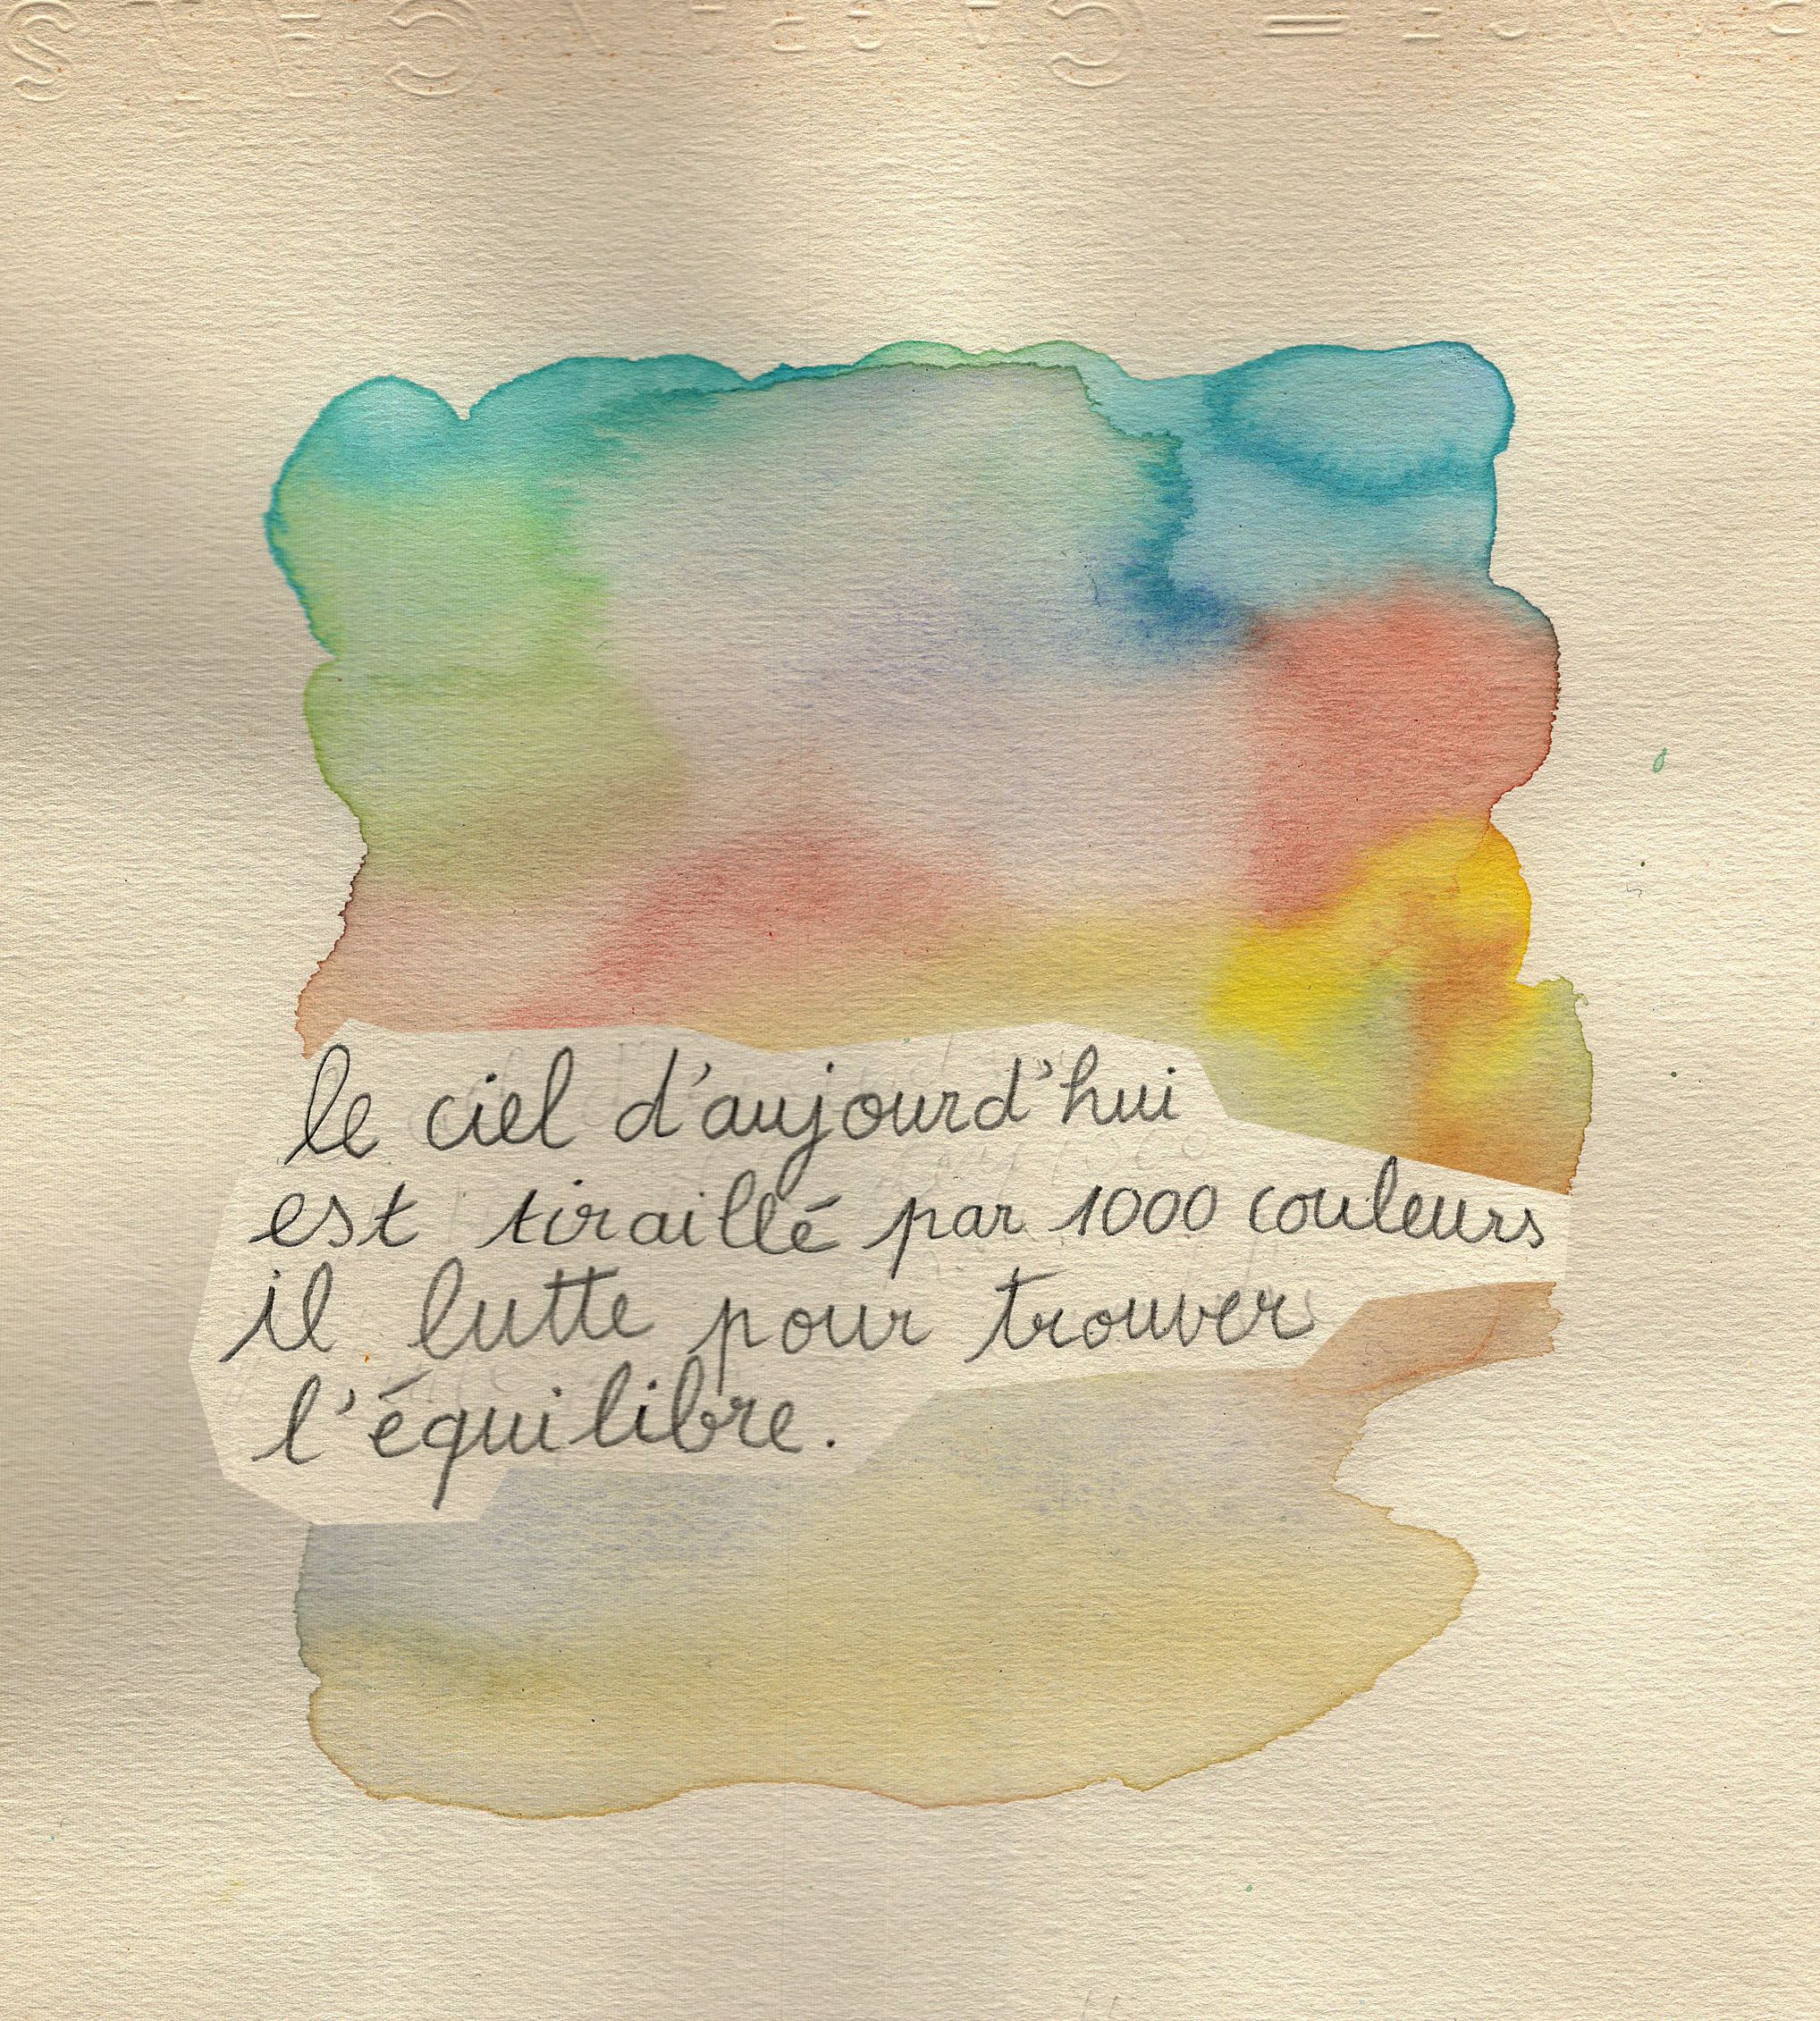 le ciel d'aujourd'hui
est tiraillé par 1000 couleurs
il lutte pour trouver
l'équilibre.